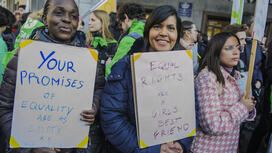 YOUR
PROMISES
OF
EQUALITY
ARE AS
EMPTY
EQUAL
RIGHTS
ARE A
GIRLS
BEST
FRIEND